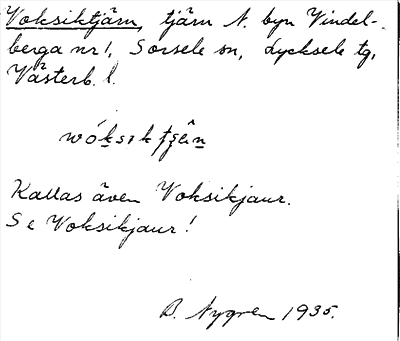 Voksiktjärn, tjärn N. byn Vindel-
berga nr 1, Sorsele sn, Lycksele tg,
Västerb. l.
Kallas även Voksikjaur.
Se Voksikjaur!
B. Nygren 1935.